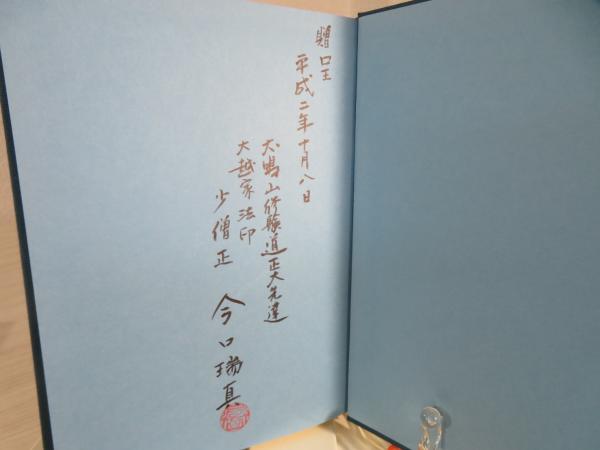 贈呈
平成二年十月八日
犬鳴山修験道正大先達
大越家法印
少僧正 今口瑞真